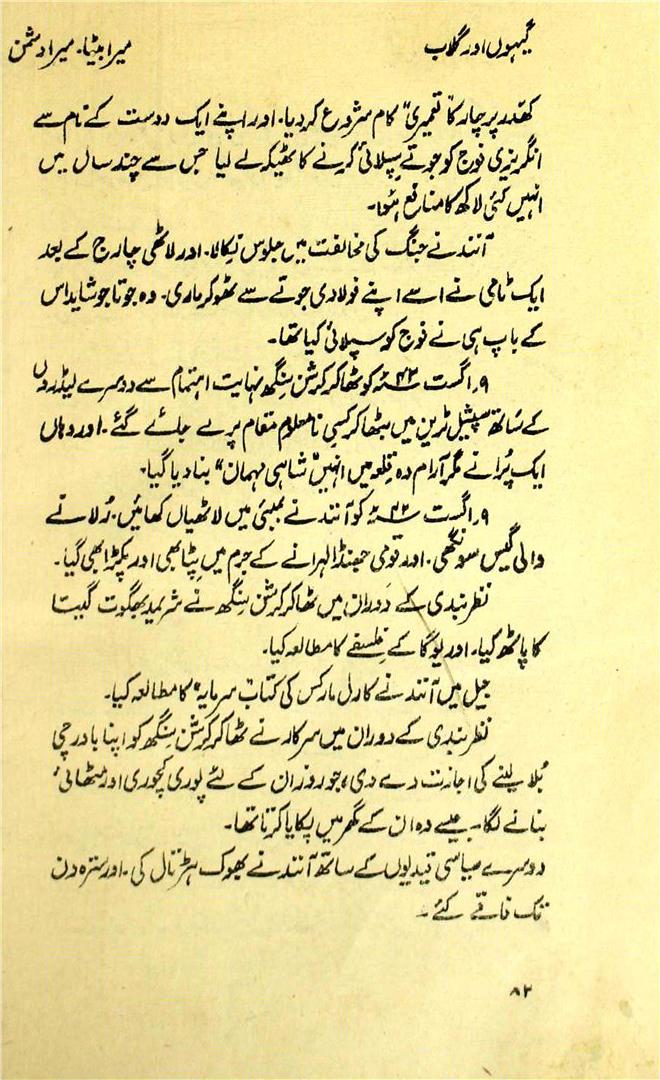 گیہوں اور گلاب
میرا بیٹا۔ میرا دشمن
کھدر پرچار کا "تعمیری" کام شروع کر دیا۔ اور اپنے ایک دوست کے نام سے
انگریزی فوج کو جوتے سپلائی کرنے کا ٹھیکہ لے لیا جس سے چند سال میں
انہیں کئی لاکھ کا منافع ہوا۔
آنند نے جنگ کی مخالفت میں جلوس نکالا۔ اور لاٹھی چارج کے بعد
ایک ٹامی نے اسے اپنے فولادی جوتے سے ٹھوکر ماری۔ وہ جوتا جو شاید اس
کے باپ ہی نے فوج کو سپلائی کیا تھا۔
۹ر اگست ۴۲ء کو ٹھاکر کرشن سنگھ نہایت اہتمام سے دوسرے لیڈروں
کے ساتھ سپیشل ٹرین میں بٹھا کر کسی نامعلوم مقام پر لے جائے گئے۔ اور وہاں
ایک پرانے مگر آرام دہ قلعہ میں انہیں "شاہی مہمان" بنا دیا گیا۔
۹ر اگست ۴۲ء کو آنند نے بمبئی میں لاٹھیاں کھائیں۔ رُلانے
والی گیس سونگھی۔ اور قومی جھنڈا لہرانے کے جرم میں پٹا بھی اور پکڑا بھی گیا۔
نظر بندی کے دَوران میں ٹھاکر کرشن سنگھ نے شریمد بھگوت گیتا
کا پاٹھ کیا۔ اور یوگا کے فلسفے کا مطالعہ کیا۔
جیل میں آنند نے کارل مارکس کی کتاب "سرمایہ" کا مطالعہ کیا۔
نظر بندی کے دوران میں سرکار نے ٹھاکر کرشن سنگھ کو اپنا باورچی
بُلا لینے کی اجازت دے دی، جو روز ان کے لئے پوری کچوری اور مٹھائی
بنانے لگا۔ جیسے وہ ان کے گھر میں پکایا کرتا تھا۔
دوسرے سیاسی قیدیوں کے ساتھ آنند نے بھوک ہڑتال کی۔ اور سترہ دن
تک فاقے کئے۔
۸۲